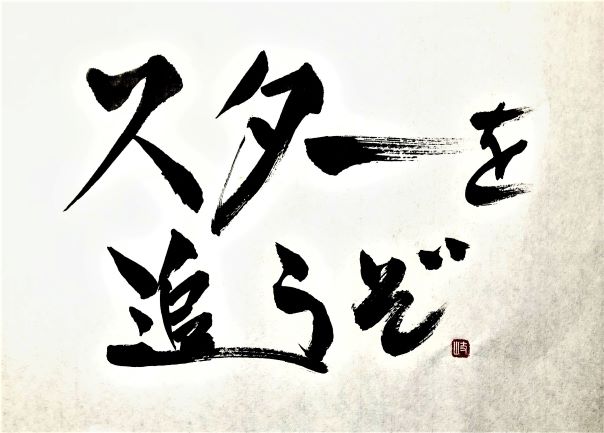 スターを
追うぞ